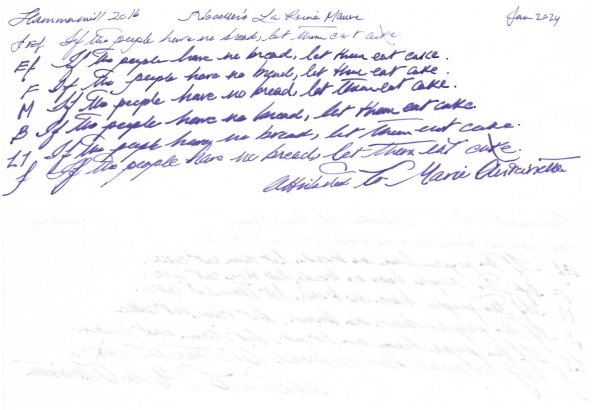 Hammermill 20 lb Noodler's La Reine Mauve Jan 2024
If the people have no bread, let them eat cake
EF If the people have no bread, let them eat cake.
F If the people have no bread, let them eat cake.
M If the people have no bread, let them eat cake.
B If the people have no bread, let them eat cake
If the people have no bread, let them eat cake.
If the people have no bread, let them eat cake.
attributed to Marie Antoinette